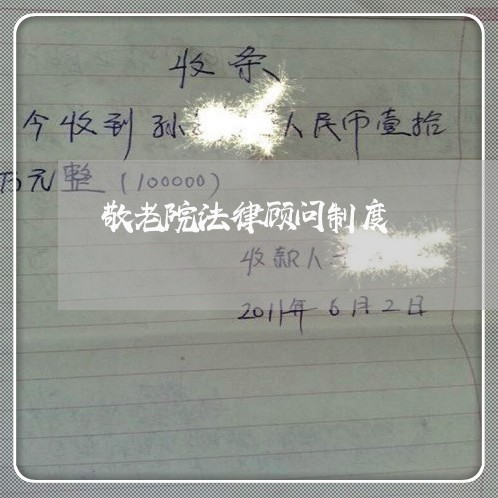 收条
今收到孙 人民币壹拾
万元整(100000)
敬老院法律顾问制度
收款人
2011年6月2日